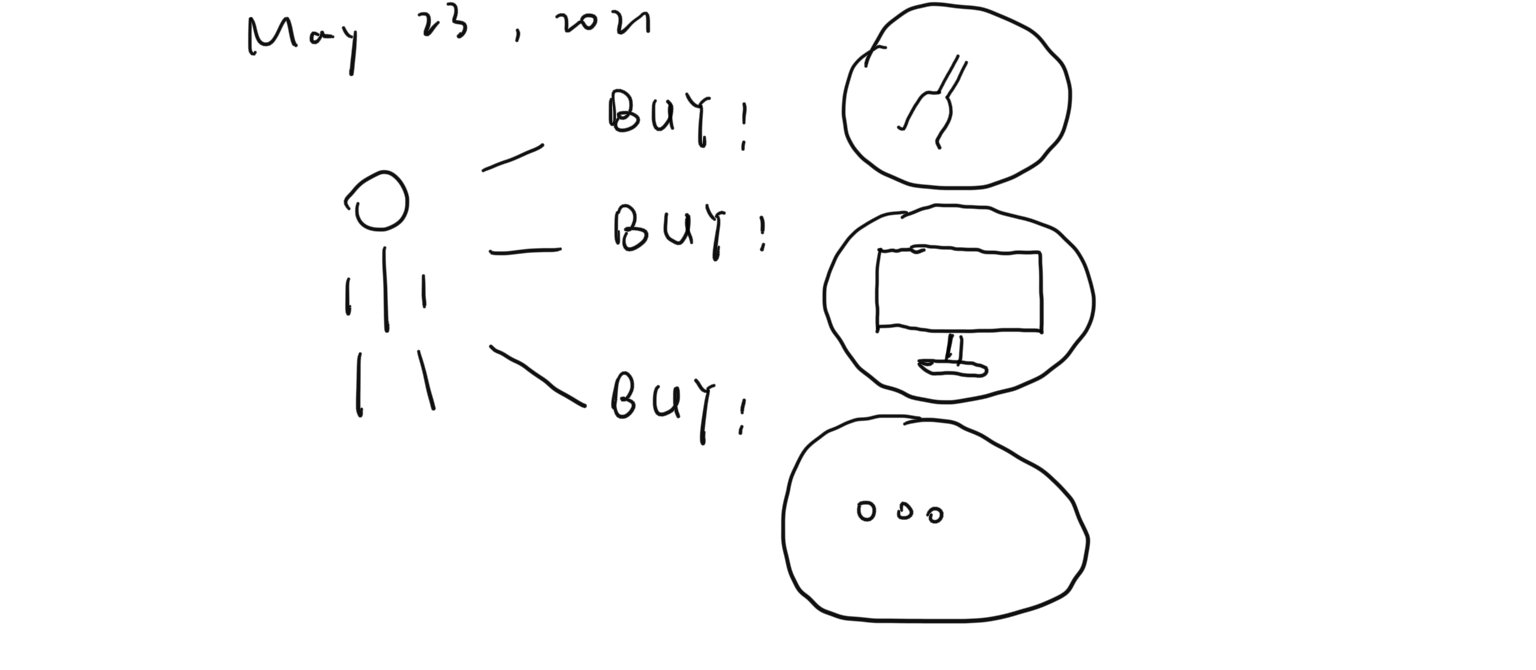 May 23, 2021
BUY!
BUY!
BUY!